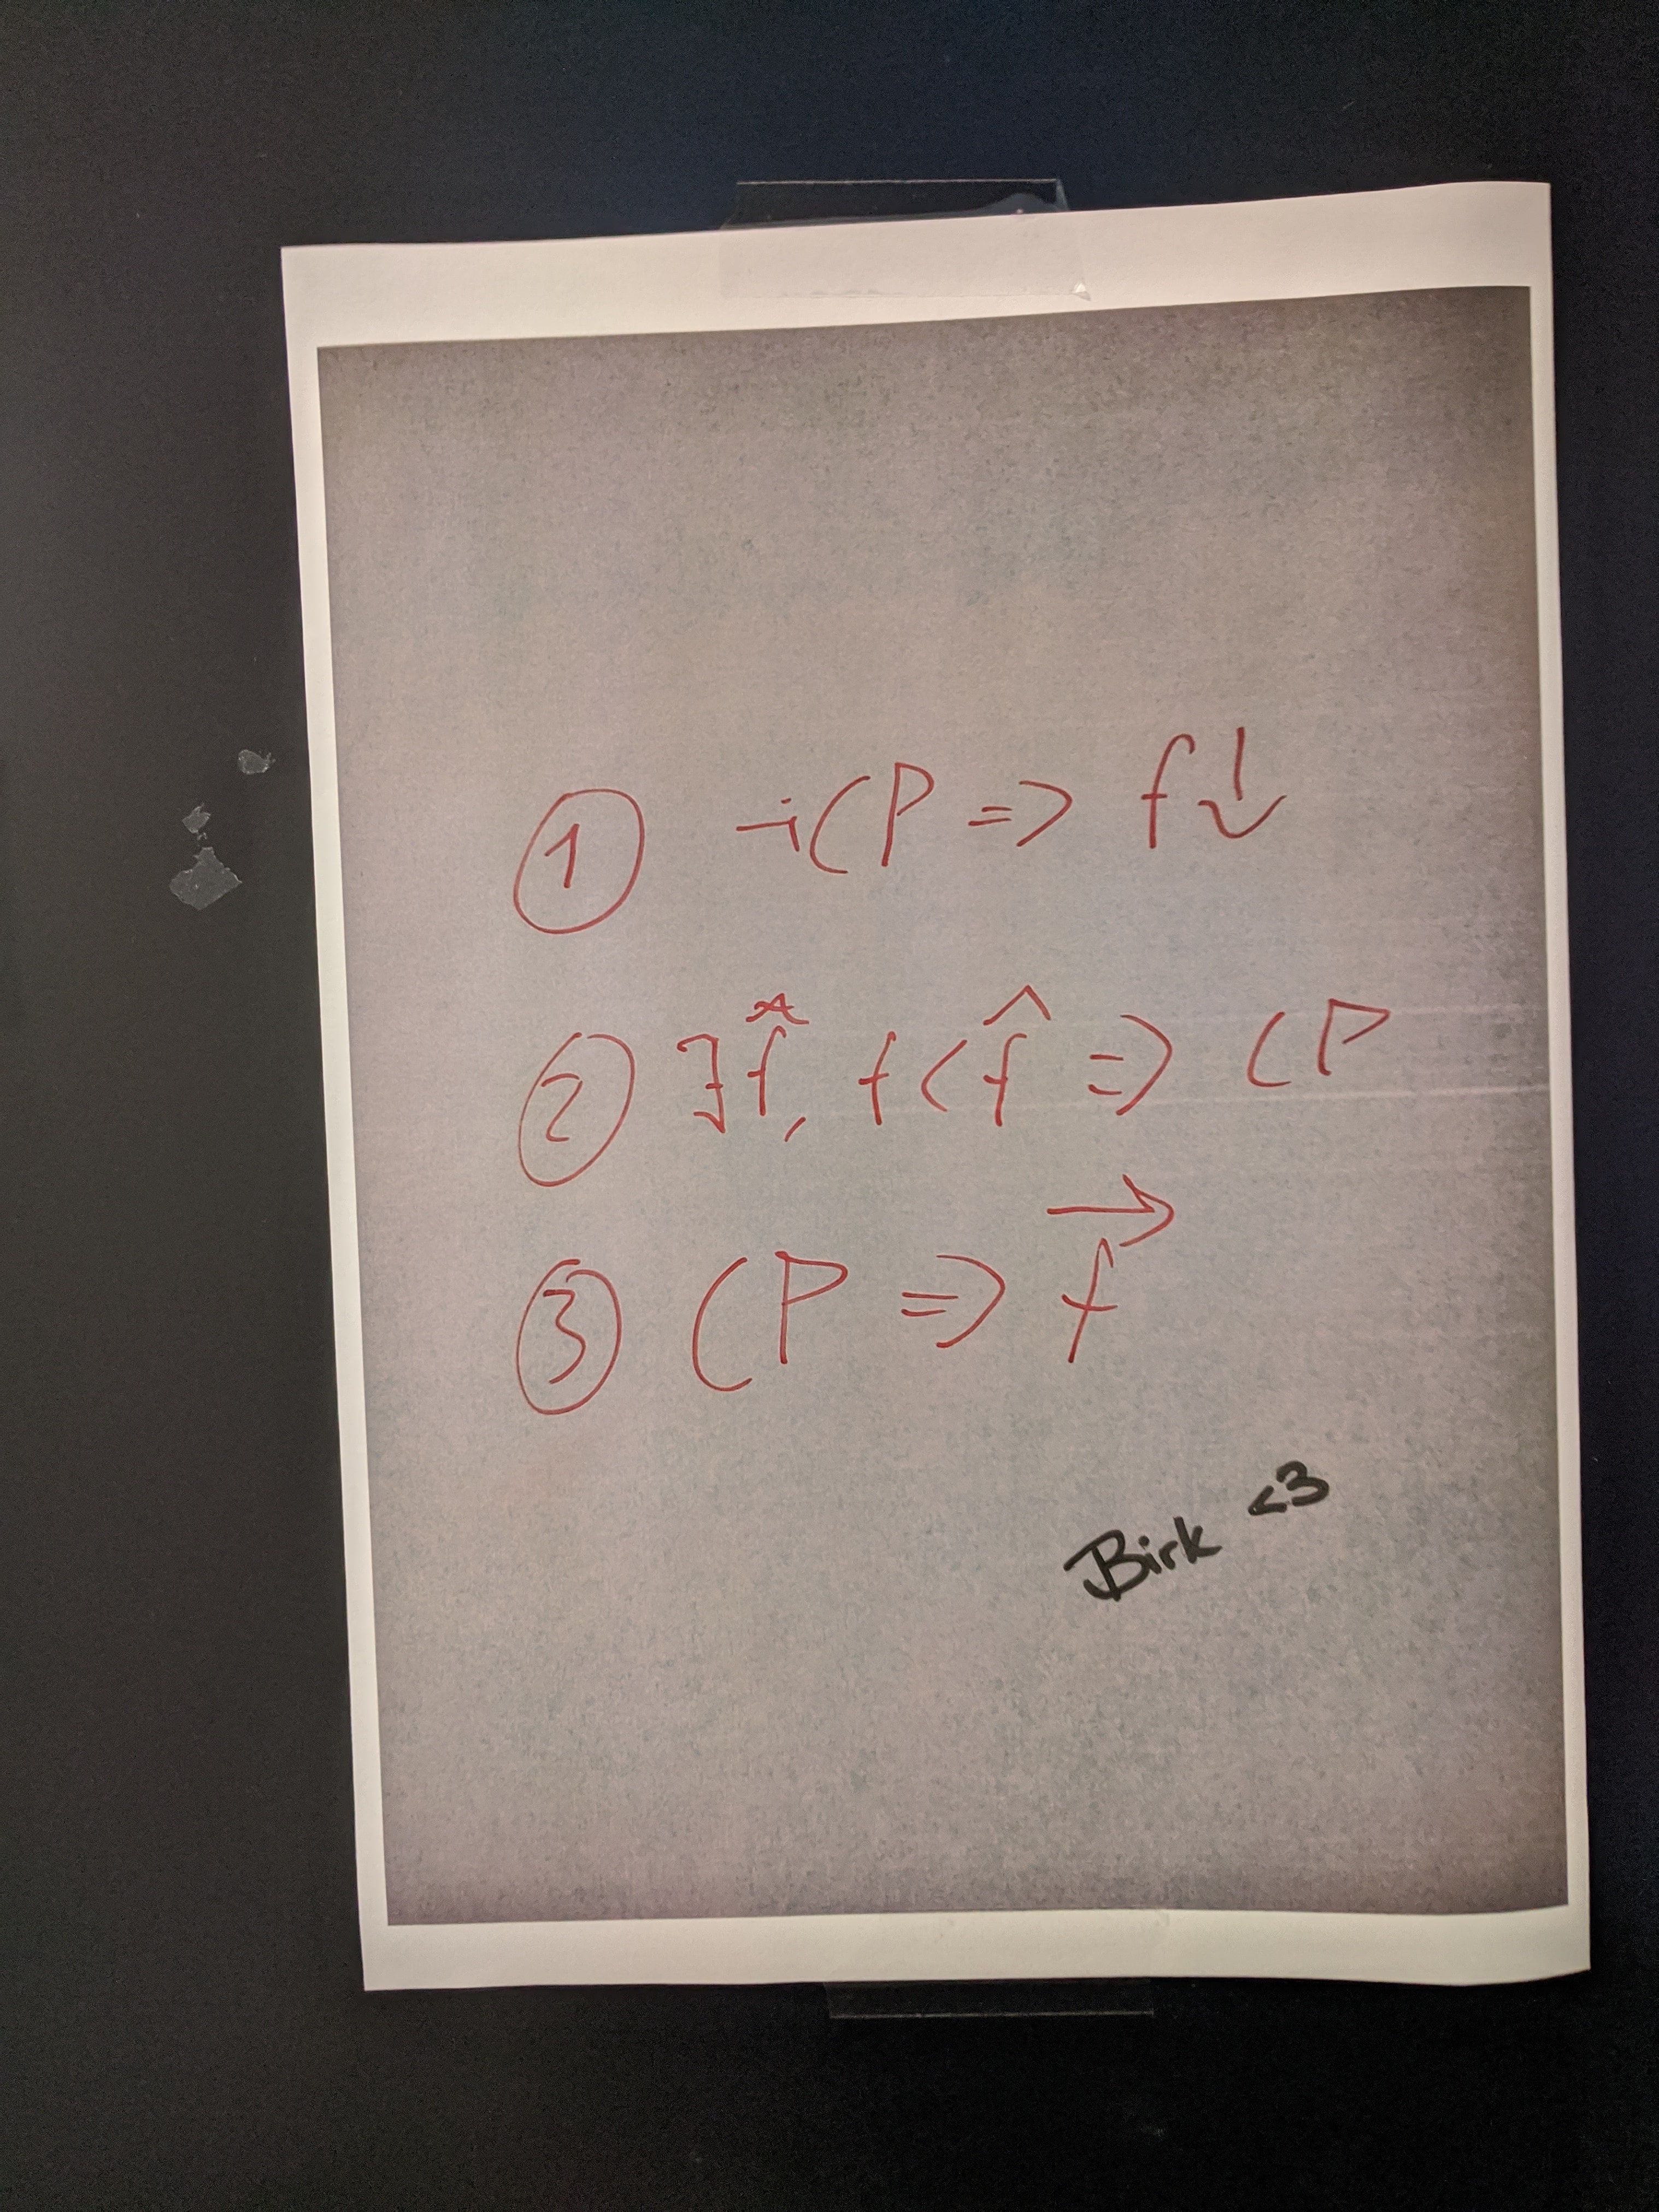 ① ¬CP => f↓
② ∃f̂, f<f̂ => CP
③ CP => f⃗
Birk <3